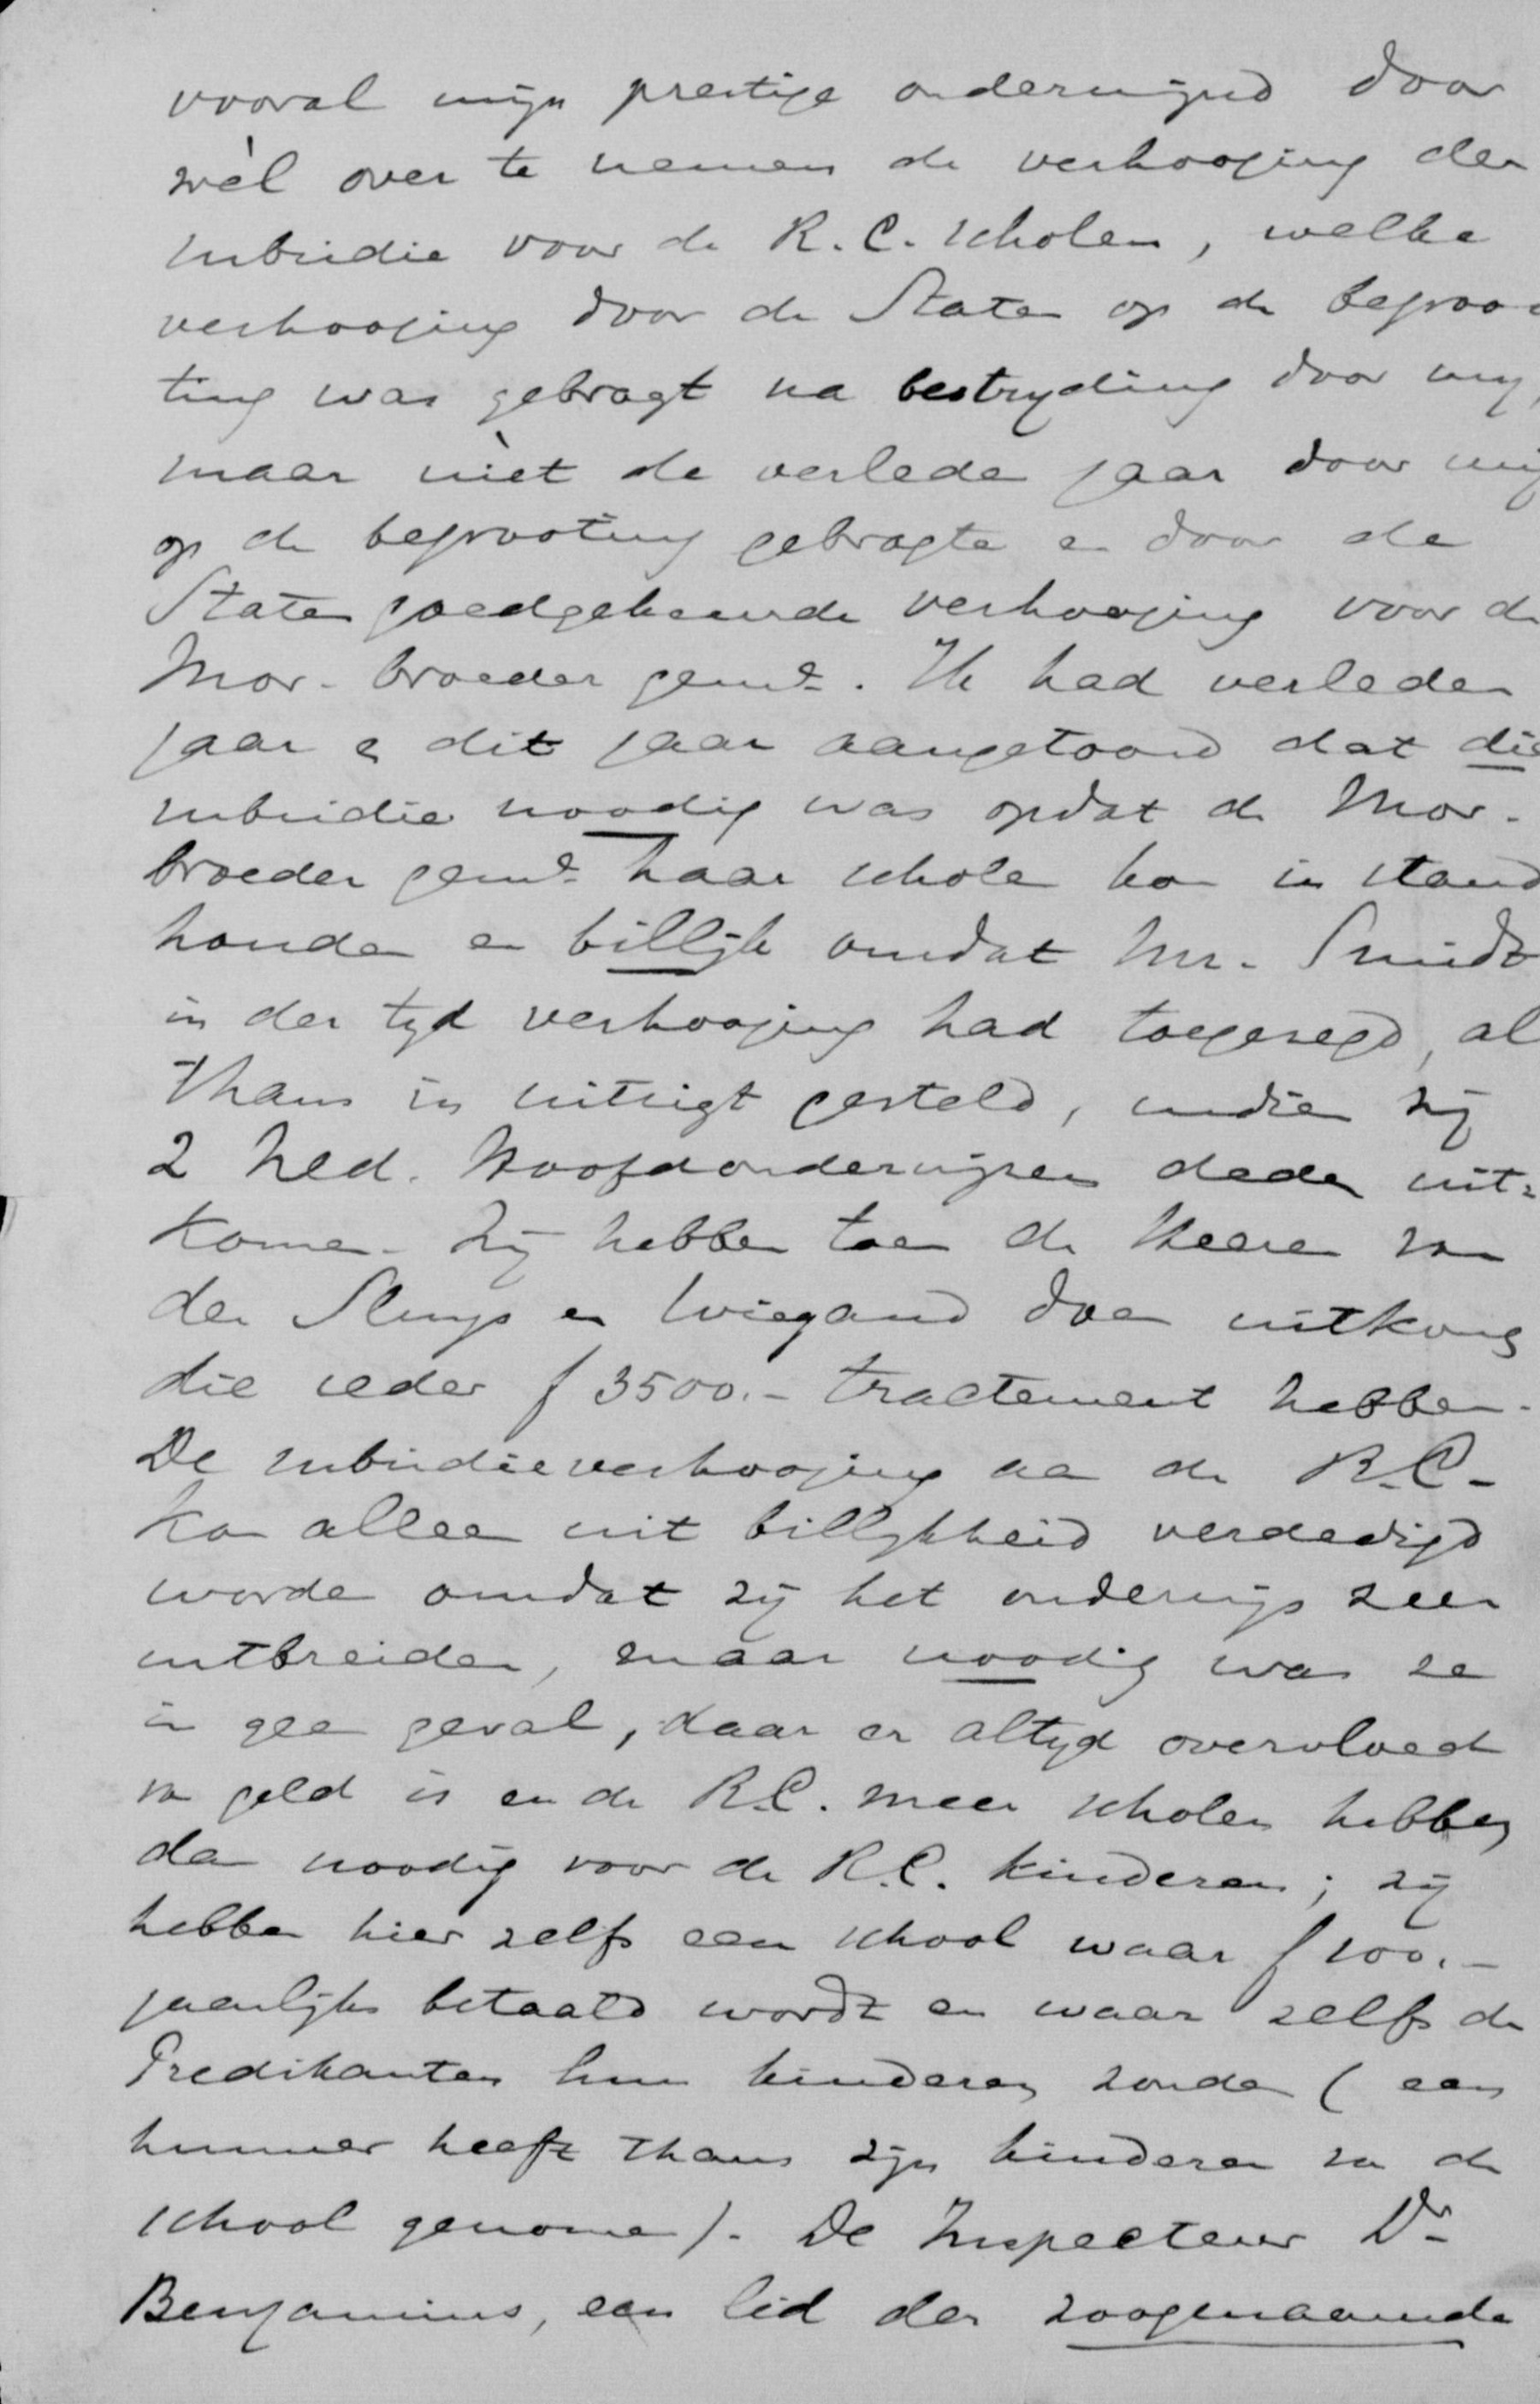 vooral mijn prestige ondermijnd door
wèl over te nemen de verhooging der
subsidie voor de R.C. scholen, welke
verhooging door de Staten op de begroo-
ting was gebragt na bestryding door my,
maar nìet de verleden jaar door mij
op de begrooting gebragte en door de
Staten goedgekeurde verhooging voor de
Mor. broeder gemte. Ik had verleden
jaar en dit jaar aangetoond dat die
subsidie noodig was opdat de Mor.
broeder gemte haar scholen kon in stand
houden en billijk omdat Mr. Smidt
in der tyd verhooging had toegezegd, al
thans in uitzigt gesteld, indien zij
2 Ned. Hoofdonderwijzers deden uit-
komen. Zij hebben toen de Heeren van
der Sluys en Wiegand doen uitkomen
die ieder f 3500.- tractement hebben.
De subsidieverhooging aan de R.C.
kan alleen uit billykheid verdedigd
worden omdat zij het onderwijs zeer
uitbreiden, maar noodig was ze
in geen geval, daar er altyd overvloed
van geld is en de R.C. meer scholen hebben
dan noodig voor de R.C. kinderen; zij
hebben hier zelfs een school waar f 100.-
jaarlijks betaald wordt en waar zelfs de
Predikanten hun kinderen zonden (een
hunner heeft thans zijn kinderen van de
school genomen). De Inspecteur Dr
Benjamins, een lid der zoogenaamde